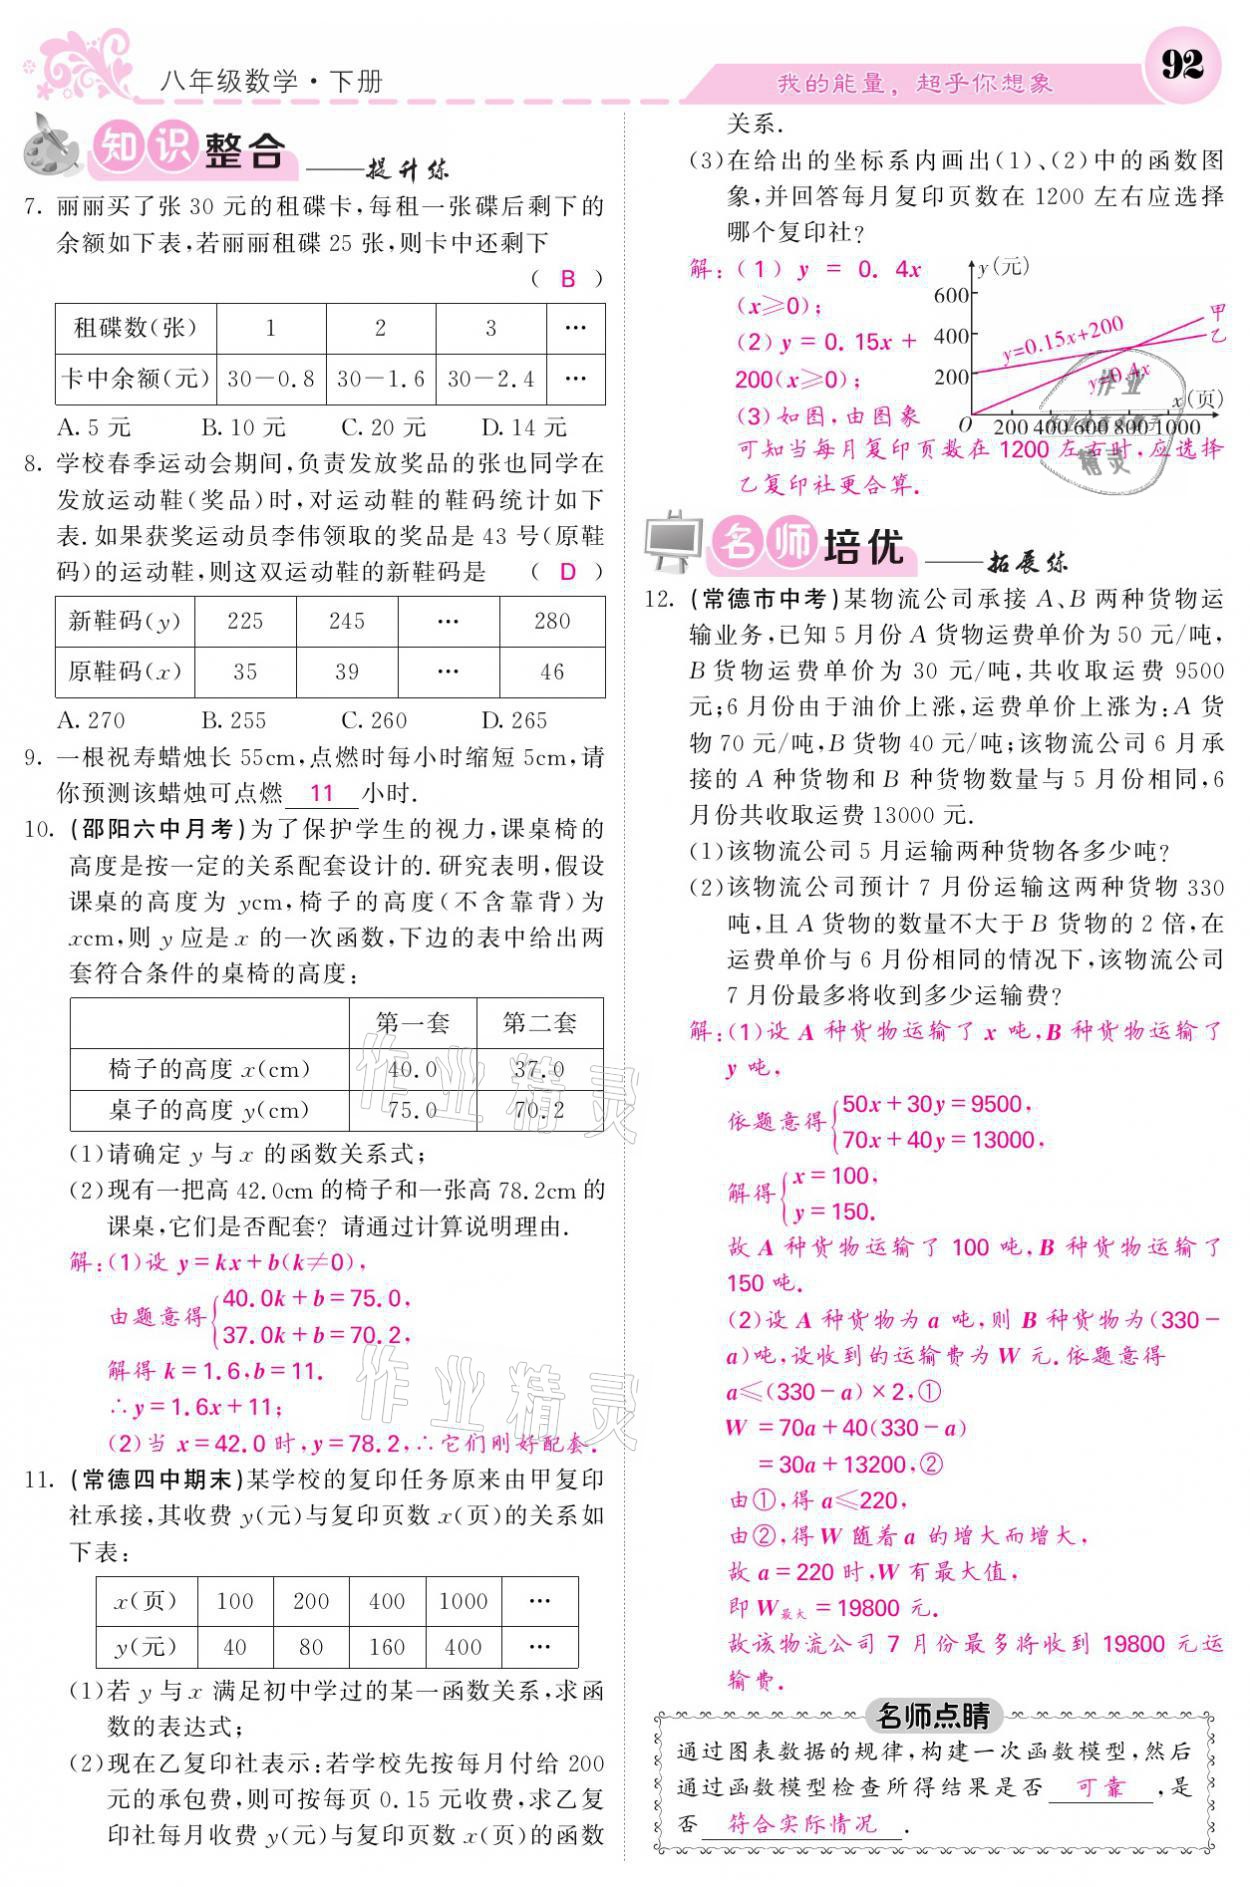 八年级数学·下册
我的能量，超乎你想象
92
知识整合——提升练
7. 丽丽买了张 30 元的租碟卡,每租一张碟后剩下的
余额如下表,若丽丽租碟 25 张,则卡中还剩下
( B )
租碟数(张) 1 2 3 …
卡中余额(元) 30－0.8 30－1.6 30－2.4 …
A. 5 元 B. 10 元 C. 20 元 D. 14 元
8. 学校春季运动会期间,负责发放奖品的张也同学在
发放运动鞋(奖品)时,对运动鞋的鞋码统计如下
表. 如果获奖运动员李伟领取的奖品是 43 号(原鞋
码)的运动鞋,则这双运动鞋的新鞋码是 ( D )
新鞋码(y) 225 245 … 280
原鞋码(x) 35 39 … 46
A. 270 B. 255 C. 260 D. 265
9. 一根祝寿蜡烛长 55cm,点燃时每小时缩短 5cm,请
你预测该蜡烛可点燃 11 小时.
10. (邵阳六中月考)为了保护学生的视力,课桌椅的
高度是按一定的关系配套设计的. 研究表明,假设
课桌的高度为 ycm,椅子的高度(不含靠背)为
xcm,则 y 应是 x 的一次函数,下边的表中给出两
套符合条件的桌椅的高度:
第一套 第二套
椅子的高度 x(cm) 40.0 37.0
桌子的高度 y(cm) 75.0 70.2
(1)请确定 y 与 x 的函数关系式;
(2)现有一把高 42.0cm 的椅子和一张高 78.2cm 的
课桌,它们是否配套? 请通过计算说明理由.
解:(1)设 y＝kx＋b(k≠0),
由题意得{40.0k＋b＝75.0,
37.0k＋b＝70.2,
解得 k＝1.6,b＝11.
∴y＝1.6x＋11;
(2)当 x＝42.0 时,y＝78.2,∴它们刚好配套.
11. (常德四中期末)某学校的复印任务原来由甲复印
社承接,其收费 y(元)与复印页数 x(页)的关系如
下表:
x(页) 100 200 400 1000 …
y(元) 40 80 160 400 …
(1)若 y 与 x 满足初中学过的某一函数关系,求函
数的表达式;
(2)现在乙复印社表示:若学校先按每月付给 200
元的承包费,则可按每页 0.15 元收费,求乙复
印社每月收费 y(元)与复印页数 x(页)的函数
关系.
(3)在给出的坐标系内画出(1)、(2)中的函数图
象,并回答每月复印页数在 1200 左右应选择
哪个复印社?
解:(1) y ＝ 0.4x
(x≥0);
(2) y ＝ 0.15x ＋
200(x≥0);
(3)如图,由图象
可知当每月复印页数在 1200 左右时,应选择
乙复印社更合算.
y(元)
600
400
200
O 200 400 600 800 1000
x(页)
甲
乙
y=0.15x+200
y=0.4x
作业
精灵
名师培优——拓展练
12. (常德市中考)某物流公司承接 A、B 两种货物运
输业务,已知 5 月份 A 货物运费单价为 50 元/吨,
B 货物运费单价为 30 元/吨,共收取运费 9500
元;6 月份由于油价上涨,运费单价上涨为:A 货
物 70 元/吨,B 货物 40 元/吨;该物流公司 6 月承
接的 A 种货物和 B 种货物数量与 5 月份相同,6
月份共收取运费 13000 元.
(1)该物流公司 5 月运输两种货物各多少吨?
(2)该物流公司预计 7 月份运输这两种货物 330
吨,且 A 货物的数量不大于 B 货物的 2 倍,在
运费单价与 6 月份相同的情况下,该物流公司
7 月份最多将收到多少运输费?
解:(1)设 A 种货物运输了 x 吨,B 种货物运输了
y 吨,
依题意得{50x＋30y＝9500,
70x＋40y＝13000,
解得{x＝100,
y＝150.
故 A 种货物运输了 100 吨,B 种货物运输了
150 吨.
(2)设 A 种货物为 a 吨,则 B 种货物为(330－
a)吨,设收到的运输费为 W 元.依题意得
a≤(330－a)×2,①
W ＝70a＋40(330－a)
＝30a＋13200,②
由①,得 a≤220,
由②,得 W 随着 a 的增大而增大,
故 a＝220 时,W 有最大值,
即 W最大＝19800 元.
故该物流公司 7 月份最多将收到 19800 元运
输费.
名师点睛
通过图表数据的规律,构建一次函数模型,然后
通过函数模型检查所得结果是否 可靠 ,是
否 符合实际情况 .
作业精灵
作业精灵